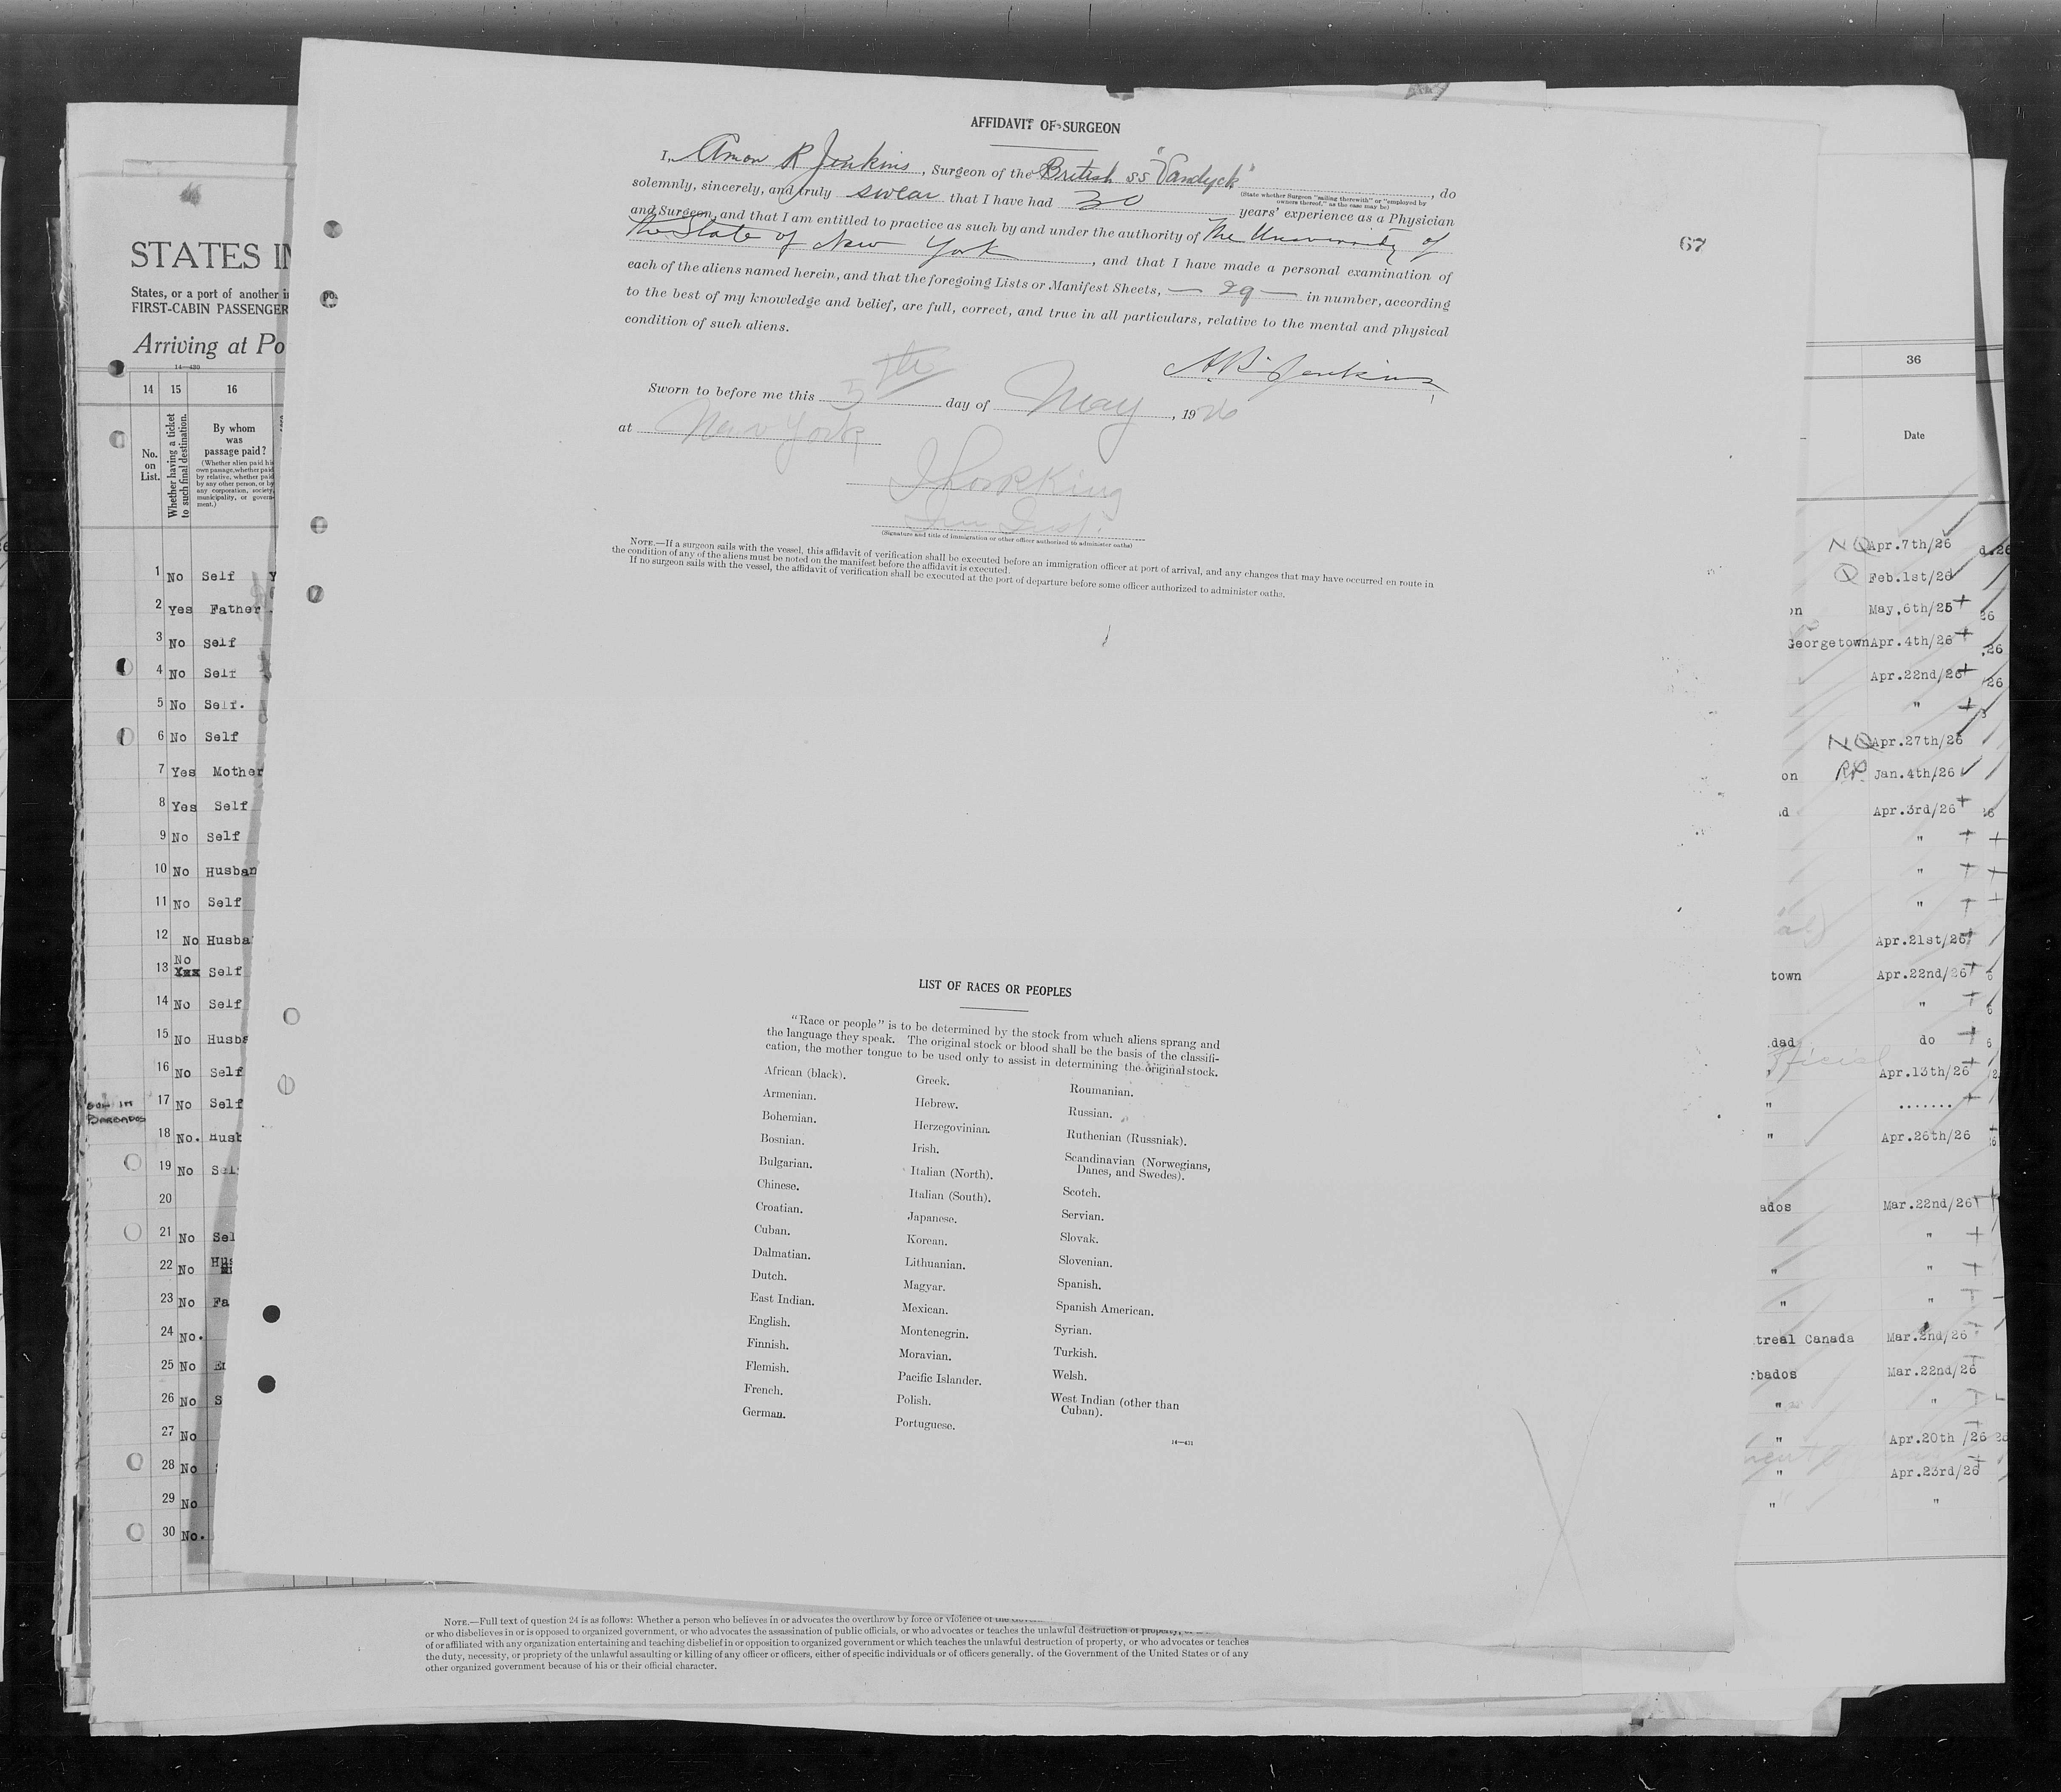 AFFIDAVIT OF SURGEON
I, Amon R Jenkins, Surgeon of the British ss "Vandyck", do
(State whether Surgeon "sailing therewith" or "employed by
owners thereof," as the case may be)
solemnly, sincerely, and truly swear that I have had 30 years' experience as a Physician
and Surgeon, and that I am entitled to practice as such by and under the authority of The University of
the State of New York, and that I have made a personal examination of
each of the aliens named herein, and that the foregoing Lists or Manifest Sheets, — 29 — in number, according
to the best of my knowledge and belief, are full, correct, and true in all particulars, relative to the mental and physical
condition of such aliens.
67
Sworn to before me this 5th day of May, 1926
at New York
Imm Insp.
(Signature and title of immigration or other officer authorized to administer oaths)
NOTE.—If a surgeon sails with the vessel, this affidavit of verification shall be executed before an immigration officer at port of arrival, and any changes that may have occurred en route in
the condition of any of the aliens must be noted on the manifest before the affidavit is executed.
If no surgeon sails with the vessel, the affidavit of verification shall be executed at the port of departure before some officer authorized to administer oaths.
LIST OF RACES OR PEOPLES
"Race or people" is to be determined by the stock from which aliens sprang and
the language they speak. The original stock or blood shall be the basis of the classifi-
cation, the mother tongue to be used only to assist in determining the original stock.
African (black).
Armenian.
Bohemian.
Bosnian.
Bulgarian.
Chinese.
Croatian.
Cuban.
Dalmatian.
Dutch.
East Indian.
English.
Finnish.
Flemish.
French.
German.
Greek.
Hebrew.
Herzegovinian.
Irish.
Italian (North).
Italian (South).
Japanese.
Korean.
Lithuanian.
Magyar.
Mexican.
Montenegrin.
Moravian.
Pacific Islander.
Polish.
Portuguese.
Roumanian.
Russian.
Ruthenian (Russniak).
Scandinavian (Norwegians,
Danes, and Swedes).
Scotch.
Servian.
Slovak.
Slovenian.
Spanish.
Spanish American.
Syrian.
Turkish.
Welsh.
West Indian (other than
Cuban).
14—431
STATES
States, or a port of another
FIRST-CABIN PASSENGER
Arriving at Po
14—430
14 15 16
No.
on
List.
Whether having a ticket
to such final destination.
By whom
was
passage paid?
(Whether alien paid his
own passage, whether paid
by relative, whether paid
by any other person, or by
any corporation, society,
municipality, or govern-
ment.)
1 No Self
2 Yes Father
3 No Self
4 No Self
5 No Self.
6 No Self
7 Yes Mother
8 Yes Self
9 No Self
10 No Husban
11 No Self
12 No Husba
13 No Self
14 No Self
15 No Husb
16 No Self
17 No Self
18 No. Husb
19 No Sel
20
21 No Sel
22 No Hus
23 No Fa
24 No.
25 No
26 No S
27 No
28 No
29 No
30 No.
36
Date
NQ Apr.7th/26
Q Feb.1st/26
on May.6th/25
Georgetown Apr.4th/26
Apr.22nd/26
"
NQ Apr.27th/26
on RP Jan.4th/26
Apr.3rd/26
"
"
"
Apr.21st/26
town Apr.22nd/26
"
dad do
Apr.13th/26
" .......
" Apr.26th/26
ados Mar.22nd/26
"
" "
" "
treal Canada Mar.2nd/26
bados Mar.22nd/26
" "
" Apr.20th/26
" Apr.23rd/26
" "
NOTE.—Full text of question 24 is as follows: Whether a person who believes in or advocates the overthrow by force or violence of the
or who disbelieves in or is opposed to organized government, or who advocates the assassination of public officials, or who advocates or teaches the unlawful destruction of property,
of or affiliated with any organization entertaining and teaching disbelief in or opposition to organized government or which teaches the unlawful destruction of property, or who advocates or teaches
the duty, necessity, or propriety of the unlawful assaulting or killing of any officer or officers, either of specific individuals or of officers generally, of the Government of the United States or of any
other organized government because of his or their official character.